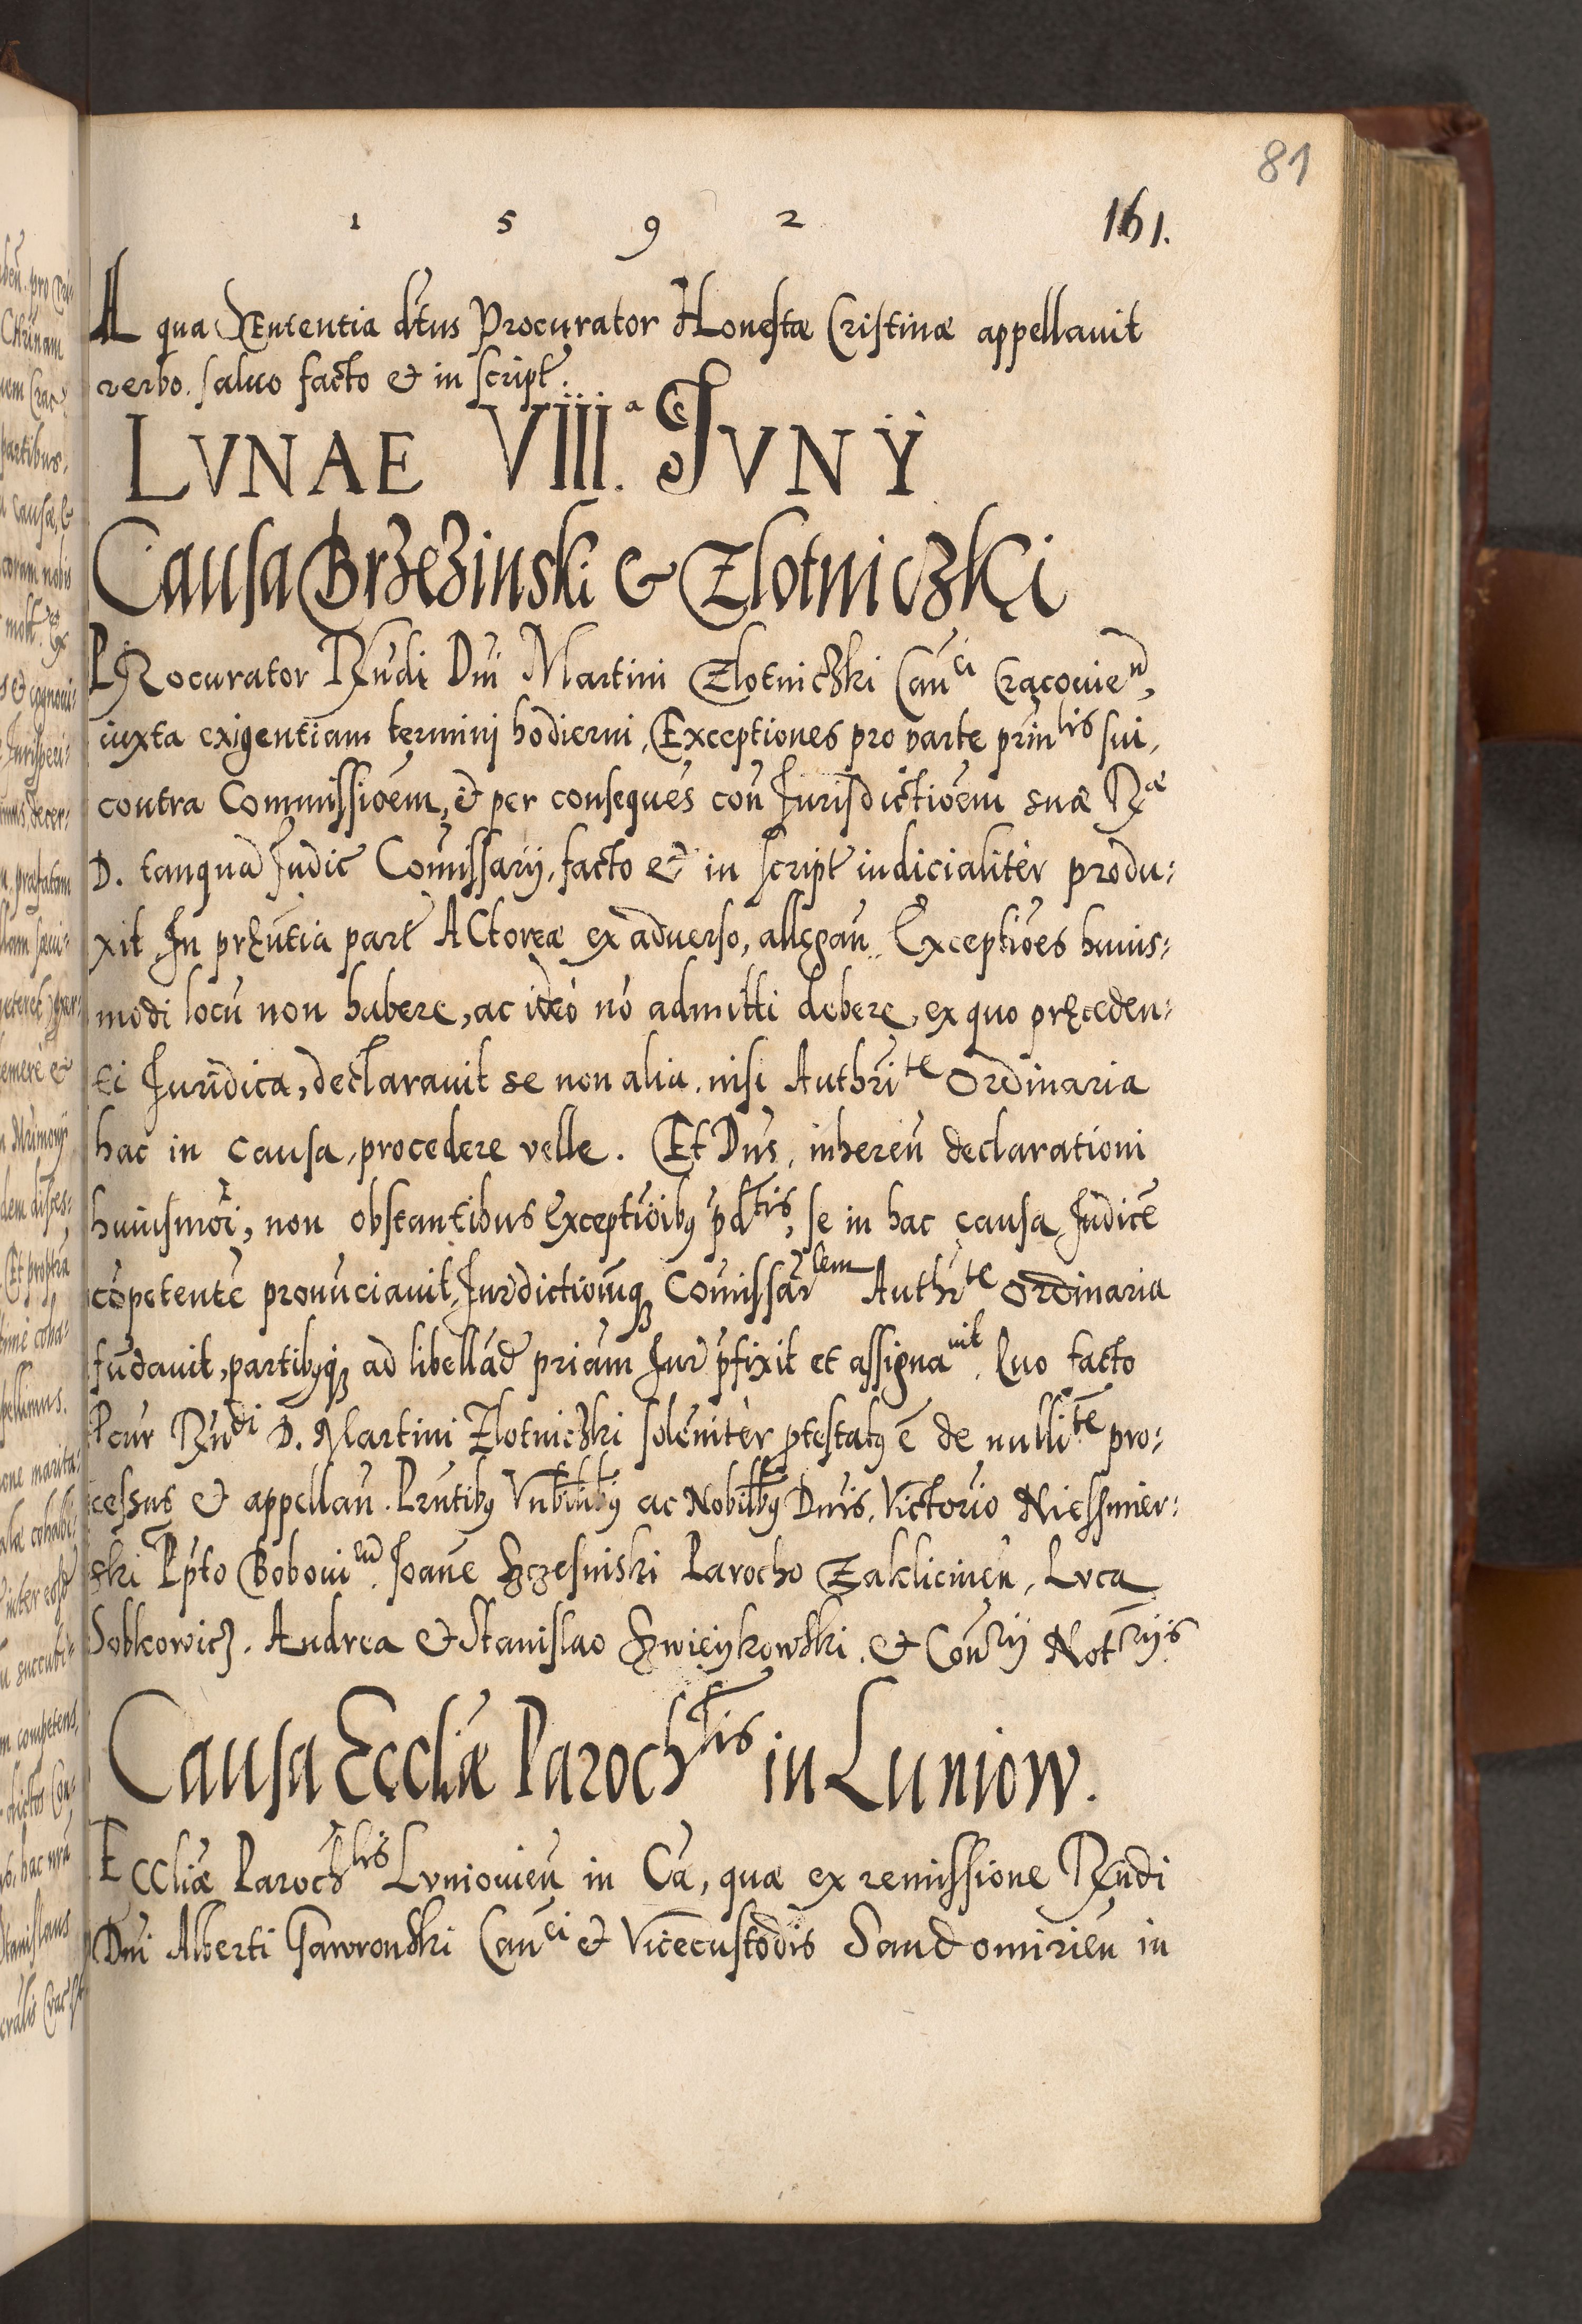 81
1 5 9 2 161.
A qua sententia dtus Procurator Honestæ Cristinæ appellauit
verbo. saluo facto et in script.
LVNAE VIII.a IVNY
Causa Brzezinski & Zlotniczki
PRocurator Rndi Dni Martini Zlotniczki Canci Cracouien,
iuxta exigentiam termini hodierni, Exceptiones pro parte prinlis sui,
contra Commissioem, et per conseques con Jurisdictioem suæ Ræ
D. tanqua Judic Comissarij, facto et in script iudicialiter produ:
xit In prEntia part ACtoreæ ex aduerso, allegan. Exceptioes huius:
modi locu non habere, ac ideo no admitti debere, ex quo pręceden:
ti Juridica, declarauit se non alia. nisi Authrite Ordinaria
hac in causa, procedere velle. Et Dns, inheren declarationi
huiusmoi, non obstantibus Exceptioibus pdtis, se in hac causa Judice
copetente pronuciauit, Jurdictiomque Comissarlem Authrte ordinaria
fudauit, partibusque ad libellad priam Jur pfixit et assignauit. Quo facto
Pcur Rndi D. Martini Zlotniczki soleniter ptestatus e de nullite pro:
cessus et appellan. Prntibus Vnbilibus ac Nobilibus Dnis. Victorio Niessmier:
ski Ppto Boboui. Joane Szczesniski Parocho Zakliciniēn, Lvca
Sobkowicz. Andrea et Stanislao Swieykowski. et Conrij Notrijs
Causa Eccliæ Parochlis in Luniow.
Eccliæ Parochlis Lvniouien in Ca, quæ ex remissione Rndi
Dni Alberti Gawronski Canci et Vicecustodis Sandomirien in